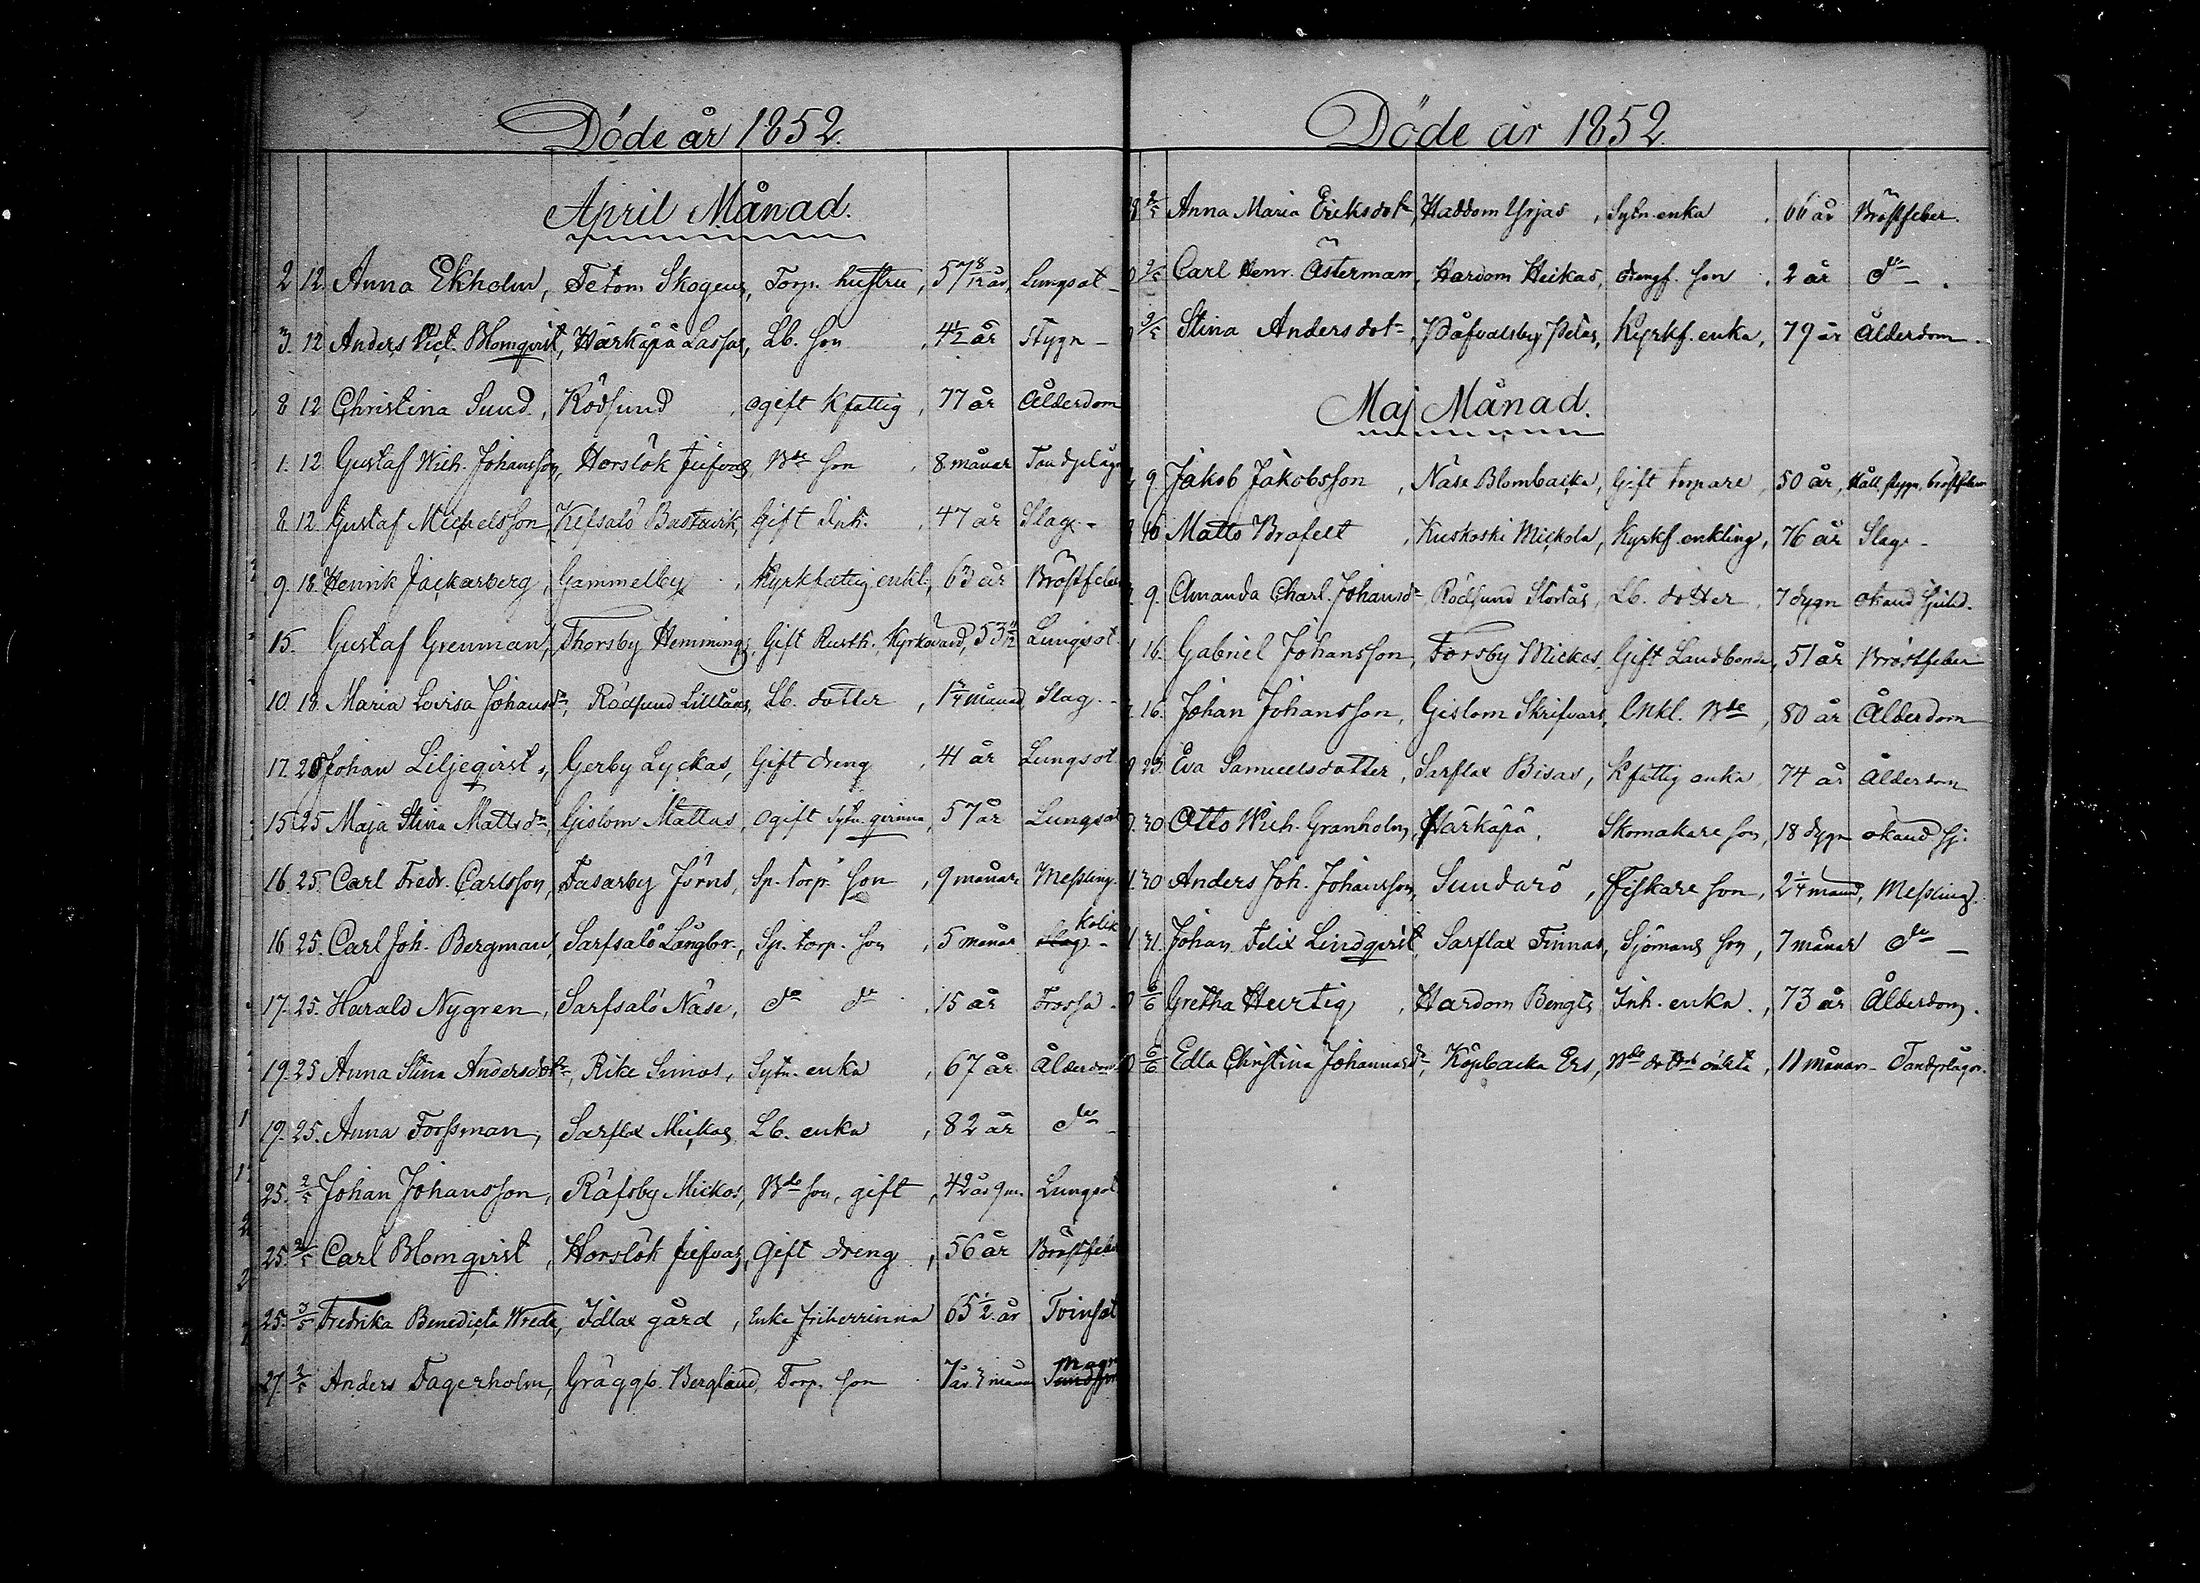 Döde år 1852.
April Månad.
2 12. Anna Ekholm, Tetom Skogens, Torp. hustru, 57 8/12 år, Lungsot
3. 12 Anders Vict. Blomqvist, Härkäpä Lassas, Lb. son, 4½ år Stygn
8 12 Christina Sund., Rödsund, ogift Kfattig, 77 år Ålderdom
1. 12 Gustaf Wilh. Johansson, Horslök Jiefvas, Bde son, 8 månar Tandplågor
8 12 Gustaf Michelsson, Kejsalö Bastuvik, Gift Inh., 47 år Slag
9. 18 Henrik Jackarberg, Gammelby, Kyrkfattig enkl., 63 år Bröstfeber
15. Gustaf Grenman, Thorsby Hemmings, Gift Rusth. Kyrkovärd, 53 11/12 Lungsot
10. 18. Maria Lovisa Johansdr, Rödsund Lilltåns, Lb. dotter, 1¼ månad Slag
17. 25 Johan Liljeqvist, Gerby Lyckas, Gift dreng, 41 år Lungsot
15. 25 Maja Stina Mattsdr, Gislom Mattas, ogift sytn.girinna, 57 år Lungsot
16. 25. Carl Fredr. Carlsson, Fasarby Jörns, Sp. torp. son, 9 månar Messling
16 25. Carl Joh. Bergman, Sarfsalö Långbr., Sp. torp. son, 5 månar Slag Kolik
17. 25. Harald Nygren, Sarfsalö Näse, do do, 15 år Frossa
19. 25 Anna Stina Andersdotr, Rike Simos, Sytn. enka, 67 år Ålderdom
19. 25. Anna Forssman, Sarflax Mickas, Lb. enka, 82 år do
25. 2/5 Johan Johansson, Räfsby Mickos, Bde son, gift, 42 år 9 m. Lungsot
25. 2/5 Carl Blomqvist, Horslök Jiefvas, Gift dreng, 56 år Bröstfeber
25. 3/5 Fredrika Benedicta Wrede, Idlax gård, Enke friherrinna 65½ år Tvinsot
27. 2/5 Anders Fagerholm, Gräggb. Bergland, Torp. son 7 år 3 månar
Döde år 1852.
2/5 Anna Maria Eriksdotr, Haddom Yrjas, Sytn. enka, 66 år Bröstfeber.
9/5 Carl Henr. Österman, Hardom Heikas, drengs. son, 2 år do
9/5 Stina Andersdotr, Påfvalsby Petas, Kyrkf. enka, 79 år Ålderdom.
Maj Månad.
9. Jakob Jakobsson, Näse Blombacka, Gift torpare, 50 år, Håll, stygn, bröstfeber
10. Matts Brofelt, Kuskoski Mickola, Kyrkf. enkling, 76 år Slag
9. Amanda Charl. Johansdr, Rödsund Stortås, Lb. dotter, 7 dygn okänd sjukd.
16. Gabriel Johansson, Forsby Mickos, Gift Landbonde, 51 år Bröstfeber
16. Johan Johansson, Gislom Skrifvars, Enkl. Bde, 80 år Ålderdom
23. Eva Samuelsdotter, Sarflax Bisas, Kfattig enka, 74 år Ålderdom
30. Otto Wilh. Granholm, Härkäpä, Skomakare son, 18 dygn okänd sj.
30 Anders Joh. Johansson, Sundarö, Fiskare son, 2¼ månad, Messling.
31. Johan Felix Lindqvist, Sarflax Finnas, Sjömans son, 7 månar do
6/6 Gretha Hurtig, Hardom Bengts, Inh. enka, 73 år Ålderdom.
6/6 Edla Christina Johannesdr, Köpbacka Ers, Bde dotr oäkta, 11 månar Tandplågor.